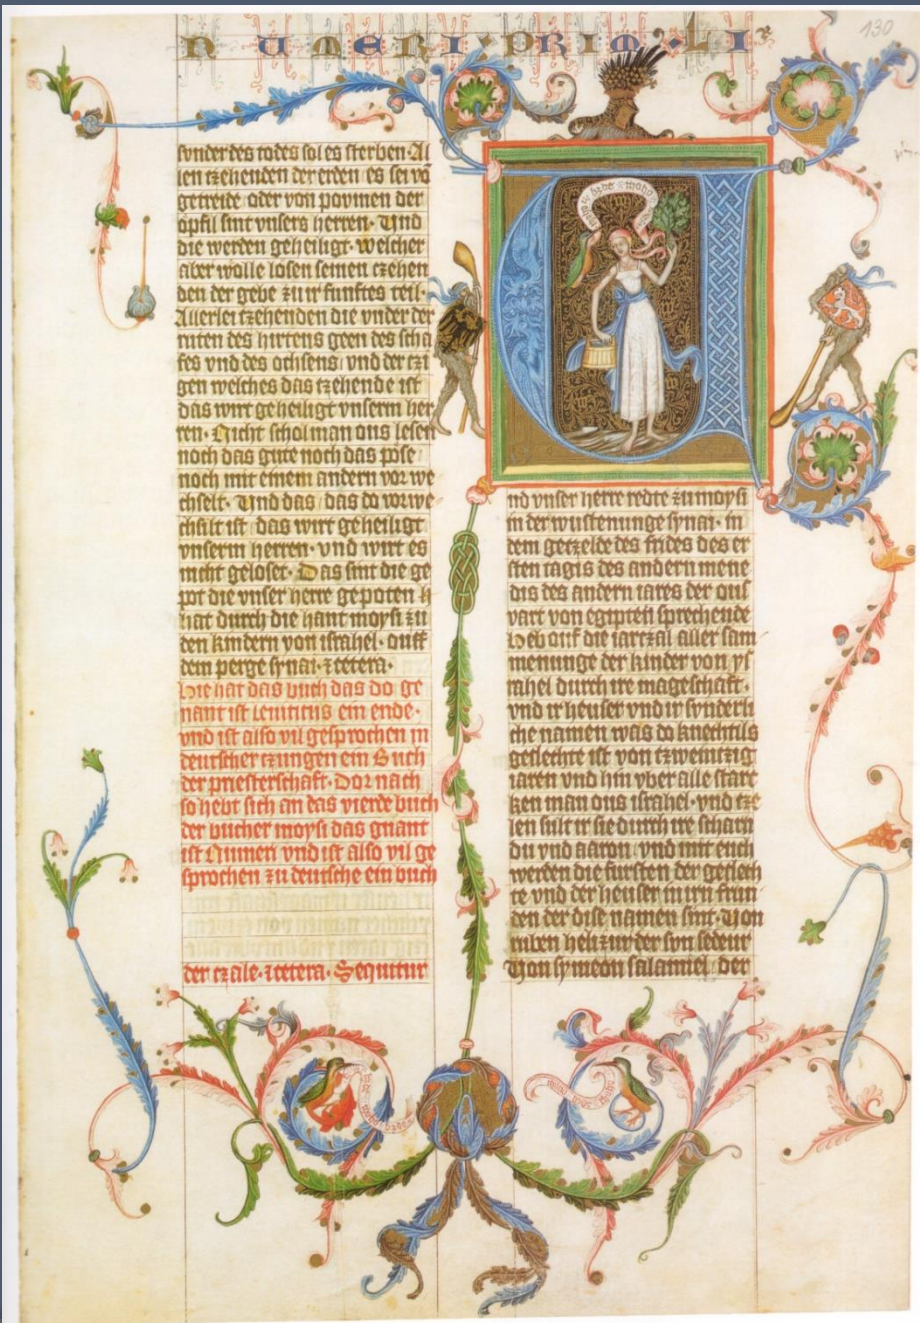 NUMERI·PRIM·LI
130
sunder des todes sol es sterben· Al
len tzehenden der erden es sei vō
getreide oder von povmen der
opfil sint vnsers herren· Vnd
die werden geheiligt· welcher
aber wolle losen seinen tzehen
den der gebe zu ir funftes teil·
Allerlei tzehenden die vnder der
ruten des hirtens geen des scha
fes vnd des ochsens vnd der tzi
gen welches das tzehende ist
das wirt geheiligt vnserm her
ren· Nicht schol man ons lesen
noch das gute noch das pose
noch mit einem andern vor we
chselt· Vnd das das do vorwe
chsilt ist das wirt geheiligt
vnserm herren· vnd wirt es
nicht geloset· Das sint die ge
pot die vnser herre gepoten
hat durch die hant moysi zu
den kindern von israhel· ouff
dem perge synai· ⁊ cetera·
Hie hat das buch das do ge
nant ist leuiticus ein ende·
vnd ist also vil gesprochen in
deutscher tzungen ein Buch
der priesterschaft· Dor nach
so hebt sich an das vierde buch
der bucher moysi das gnant
ist Numeri vnd ist also vil ge
sprochen zu deutsche ein buch
der tzale· ⁊ cetera· Sequitur
U
nd vnser herre redte zu moysi
in der wustenunge synai· in
dem getzelde des frides des er
sten tagis des andern mene
dis des andern iares der ous
vart von egipten sprechende
Heb ouf die iartzal aller sam
menunge der kinder von ys
rahel durch ire mageschaft·
vnd ir heuser vnd ir sunderli
che namen was do knechtils
geslechte ist von tzweintzig
iaren vnd hin vber alle starc
ken man ous israhel· vnd tze
len sult ir sie durch ire scharn
du vnd aaron vnd mit euch
werden die fursten der geslech
te vnd der heuser in irn frun
den der dise namen sint· Von
ruben helizur der syn sedeur
Von symeon salamiel der